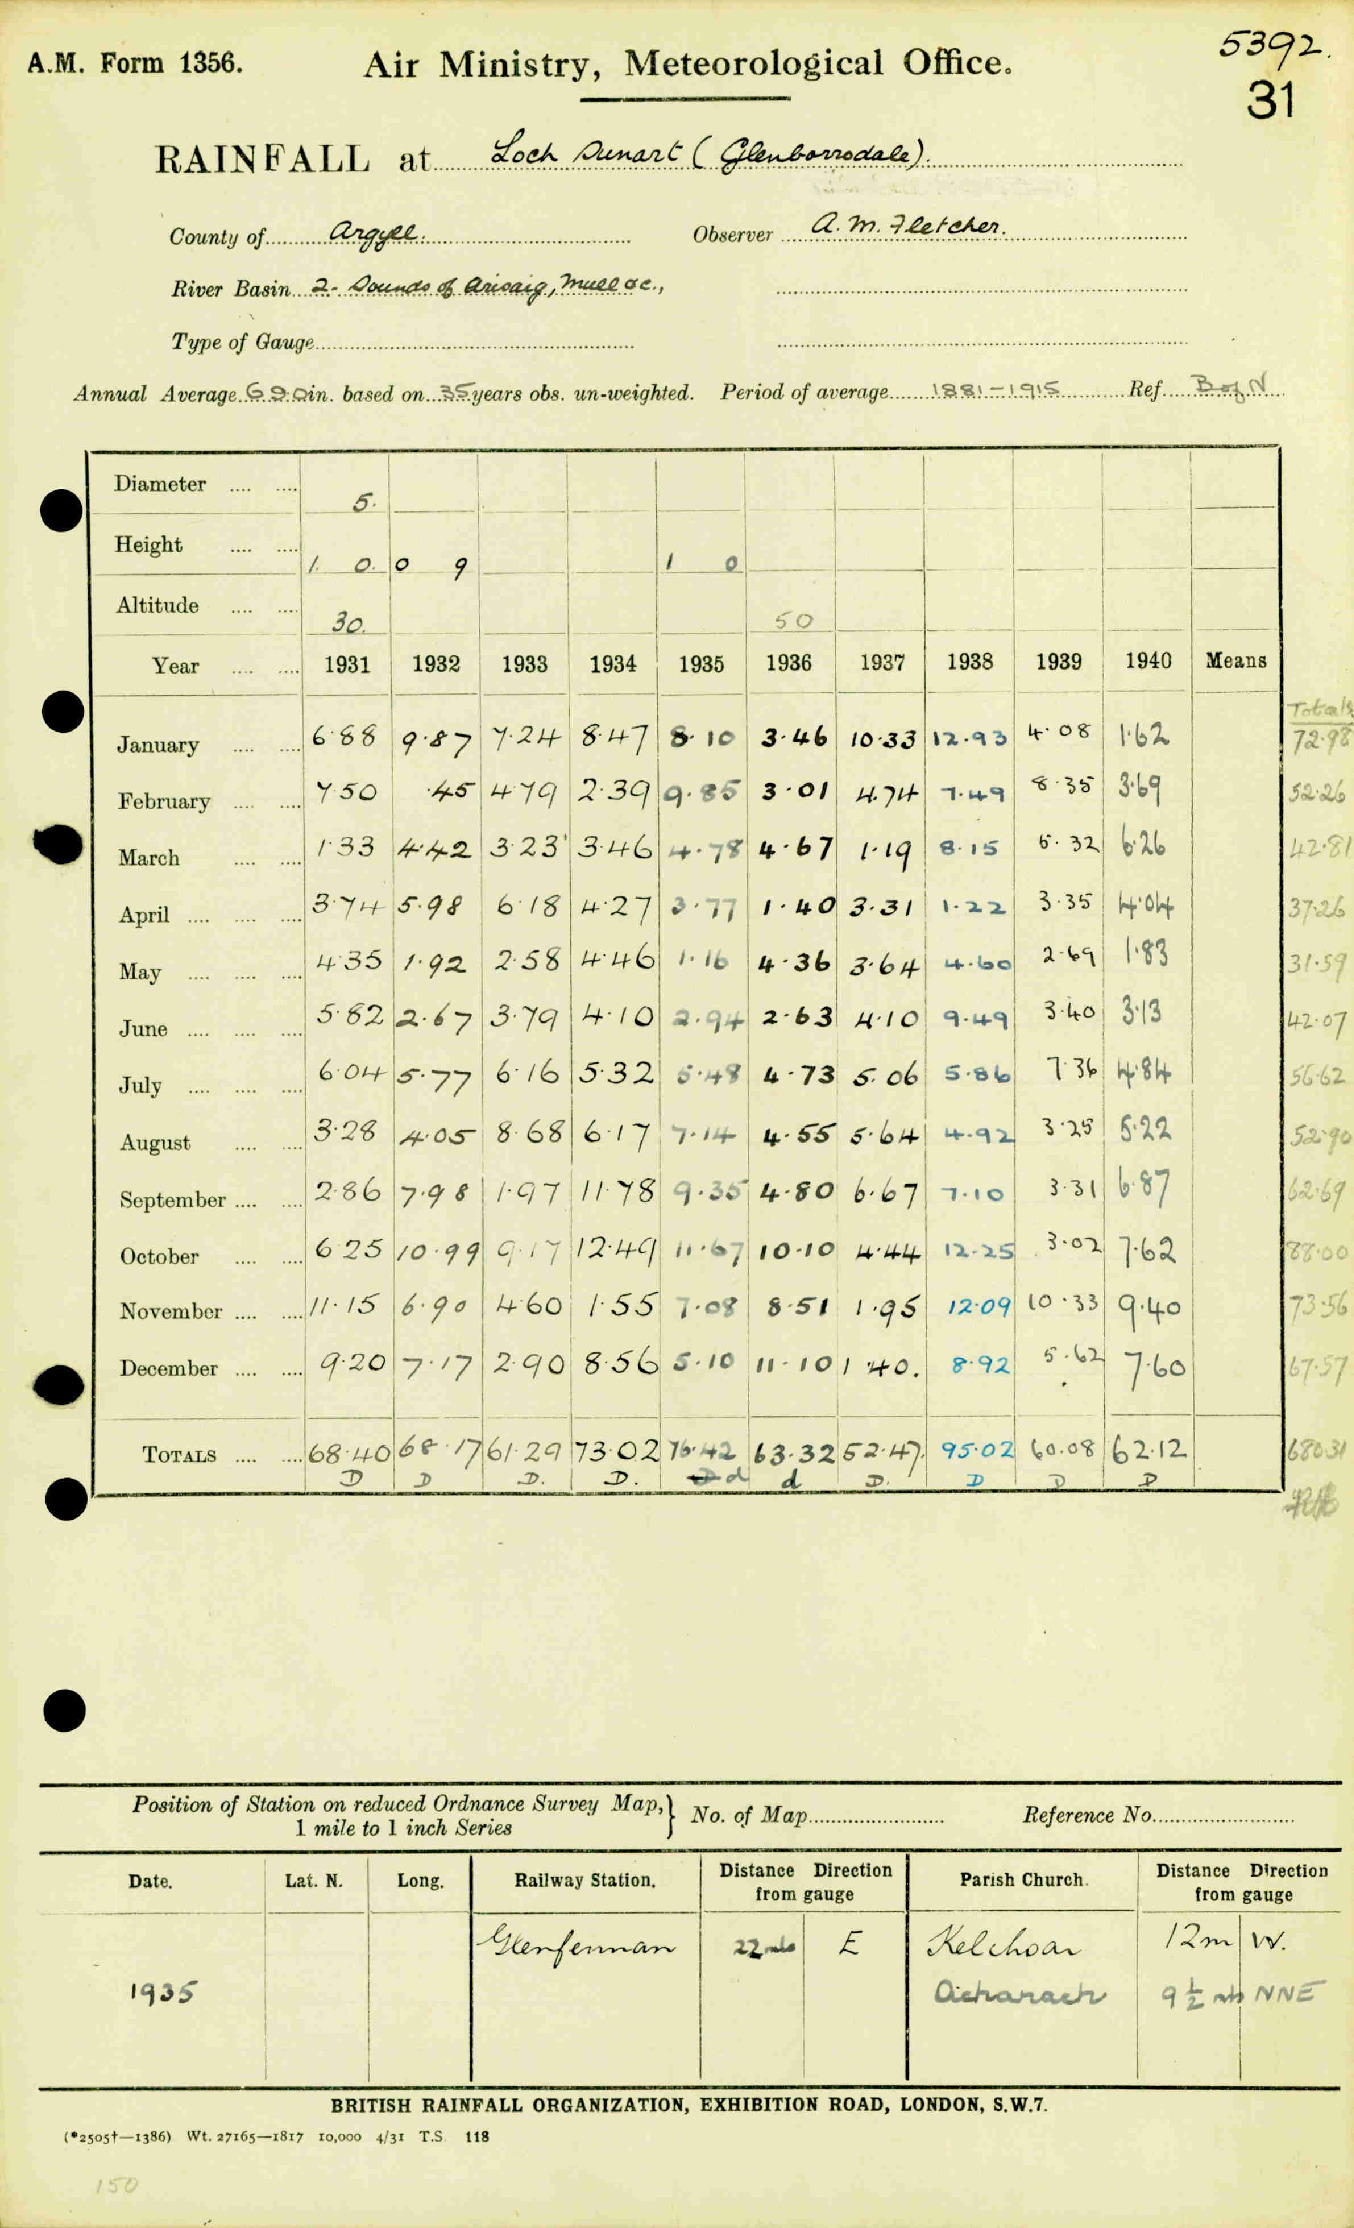 5392.
A.M. Form 1356. Air Ministry, Meteorological Office.
31
RAINFALL at Loch Sunart (Glenborrodale).
County of Argyll. Observer A. M. Fletcher.
River Basin 2- Sounds of Arisaig, Mull &c.,
Type of Gauge
Annual Average 69.0 in. based on 35 years obs. un-weighted. Period of average 1881-1915 Ref. B of N
Diameter 5.
Height 1. 0. 0 9 1 0
Altitude 30. 50
Year 1931 1932 1933 1934 1935 1936 1937 1938 1939 1940 Means
Totals
January 6.88 9.87 7.24 8.47 8.10 3.46 10.33 12.93 4.08 1.62 72.98
February 7.50 .45 4.79 2.39 9.85 3.01 4.74 7.49 8.35 3.69 52.26
March 1.33 4.42 3.23 3.46 4.78 4.67 1.19 8.15 5.32 6.26 42.81
April 3.74 5.98 6.18 4.27 3.77 1.40 3.31 1.22 3.35 4.04 37.26
May 4.35 1.92 2.58 4.46 1.16 4.36 3.64 4.60 2.69 1.83 31.59
June 5.82 2.67 3.79 4.10 2.94 2.63 4.10 9.49 3.40 3.13 42.07
July 6.04 5.77 6.16 5.32 5.48 4.73 5.06 5.86 7.36 4.84 56.62
August 3.28 4.05 8.68 6.17 7.14 4.55 5.64 4.92 3.25 5.22 52.90
September 2.86 7.98 1.97 11.78 9.35 4.80 6.67 7.10 3.31 6.87 62.69
October 6.25 10.99 9.17 12.49 11.67 10.10 4.44 12.25 3.02 7.62 88.00
November 11.15 6.90 4.60 1.55 7.08 8.51 1.95 12.09 10.33 9.40 73.56
December 9.20 7.17 2.90 8.56 5.10 11.10 1.40. 8.92 5.62 7.60 67.57
TOTALS 68.40 68.17 61.29 73.02 76.42 63.32 52.47. 95.02 60.08 62.12 680.31
D D D. D. D d d D. D D D
Position of Station on reduced Ordnance Survey Map, No. of Map Reference No.
1 mile to 1 inch Series
Date. Lat. N. Long. Railway Station. Distance Direction from gauge Parish Church. Distance Direction from gauge
Glenfinnan 22 mls E Kelchoan 12m W.
1935 Acharach 9 1/2 mls NNE
BRITISH RAINFALL ORGANIZATION, EXHIBITION ROAD, LONDON, S.W.7.
(*2505†—1386) Wt. 27165—1817 10,000 4/31 T.S. 118
150